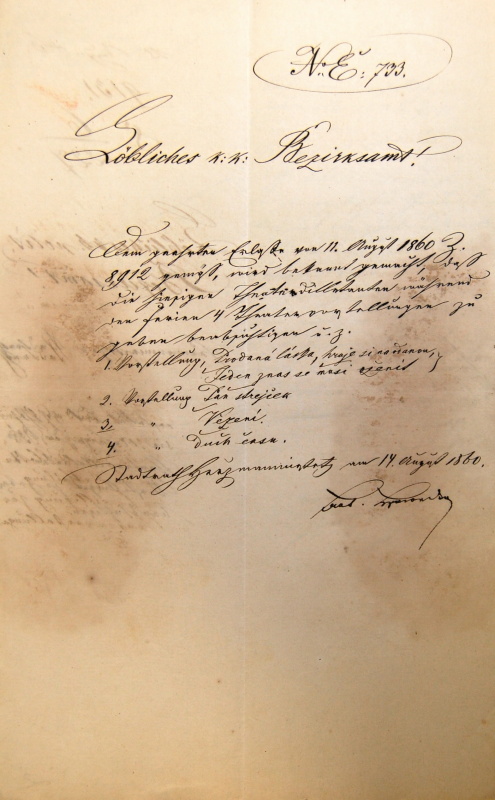 No. E: 733.
Löbliches k: k: Bezirksamt!
Dem geehrten Erlaße vom 11. August 1860 Z.
8912 gemäß, wird bekannt gemacht, daß
die hiesigen Theaterdilletanten während
den Ferien 4 Theatervorstellungen zu
geben beabsichtigen u. z.
1. Vorstellung, Prodaná láska,
Jeden z nas se musi oženit
2. Vorstellung Pan strejček
3. " Vězení.
4. " Duch času.
Stadtrath Heržmanměstetz am 14. August 1860.